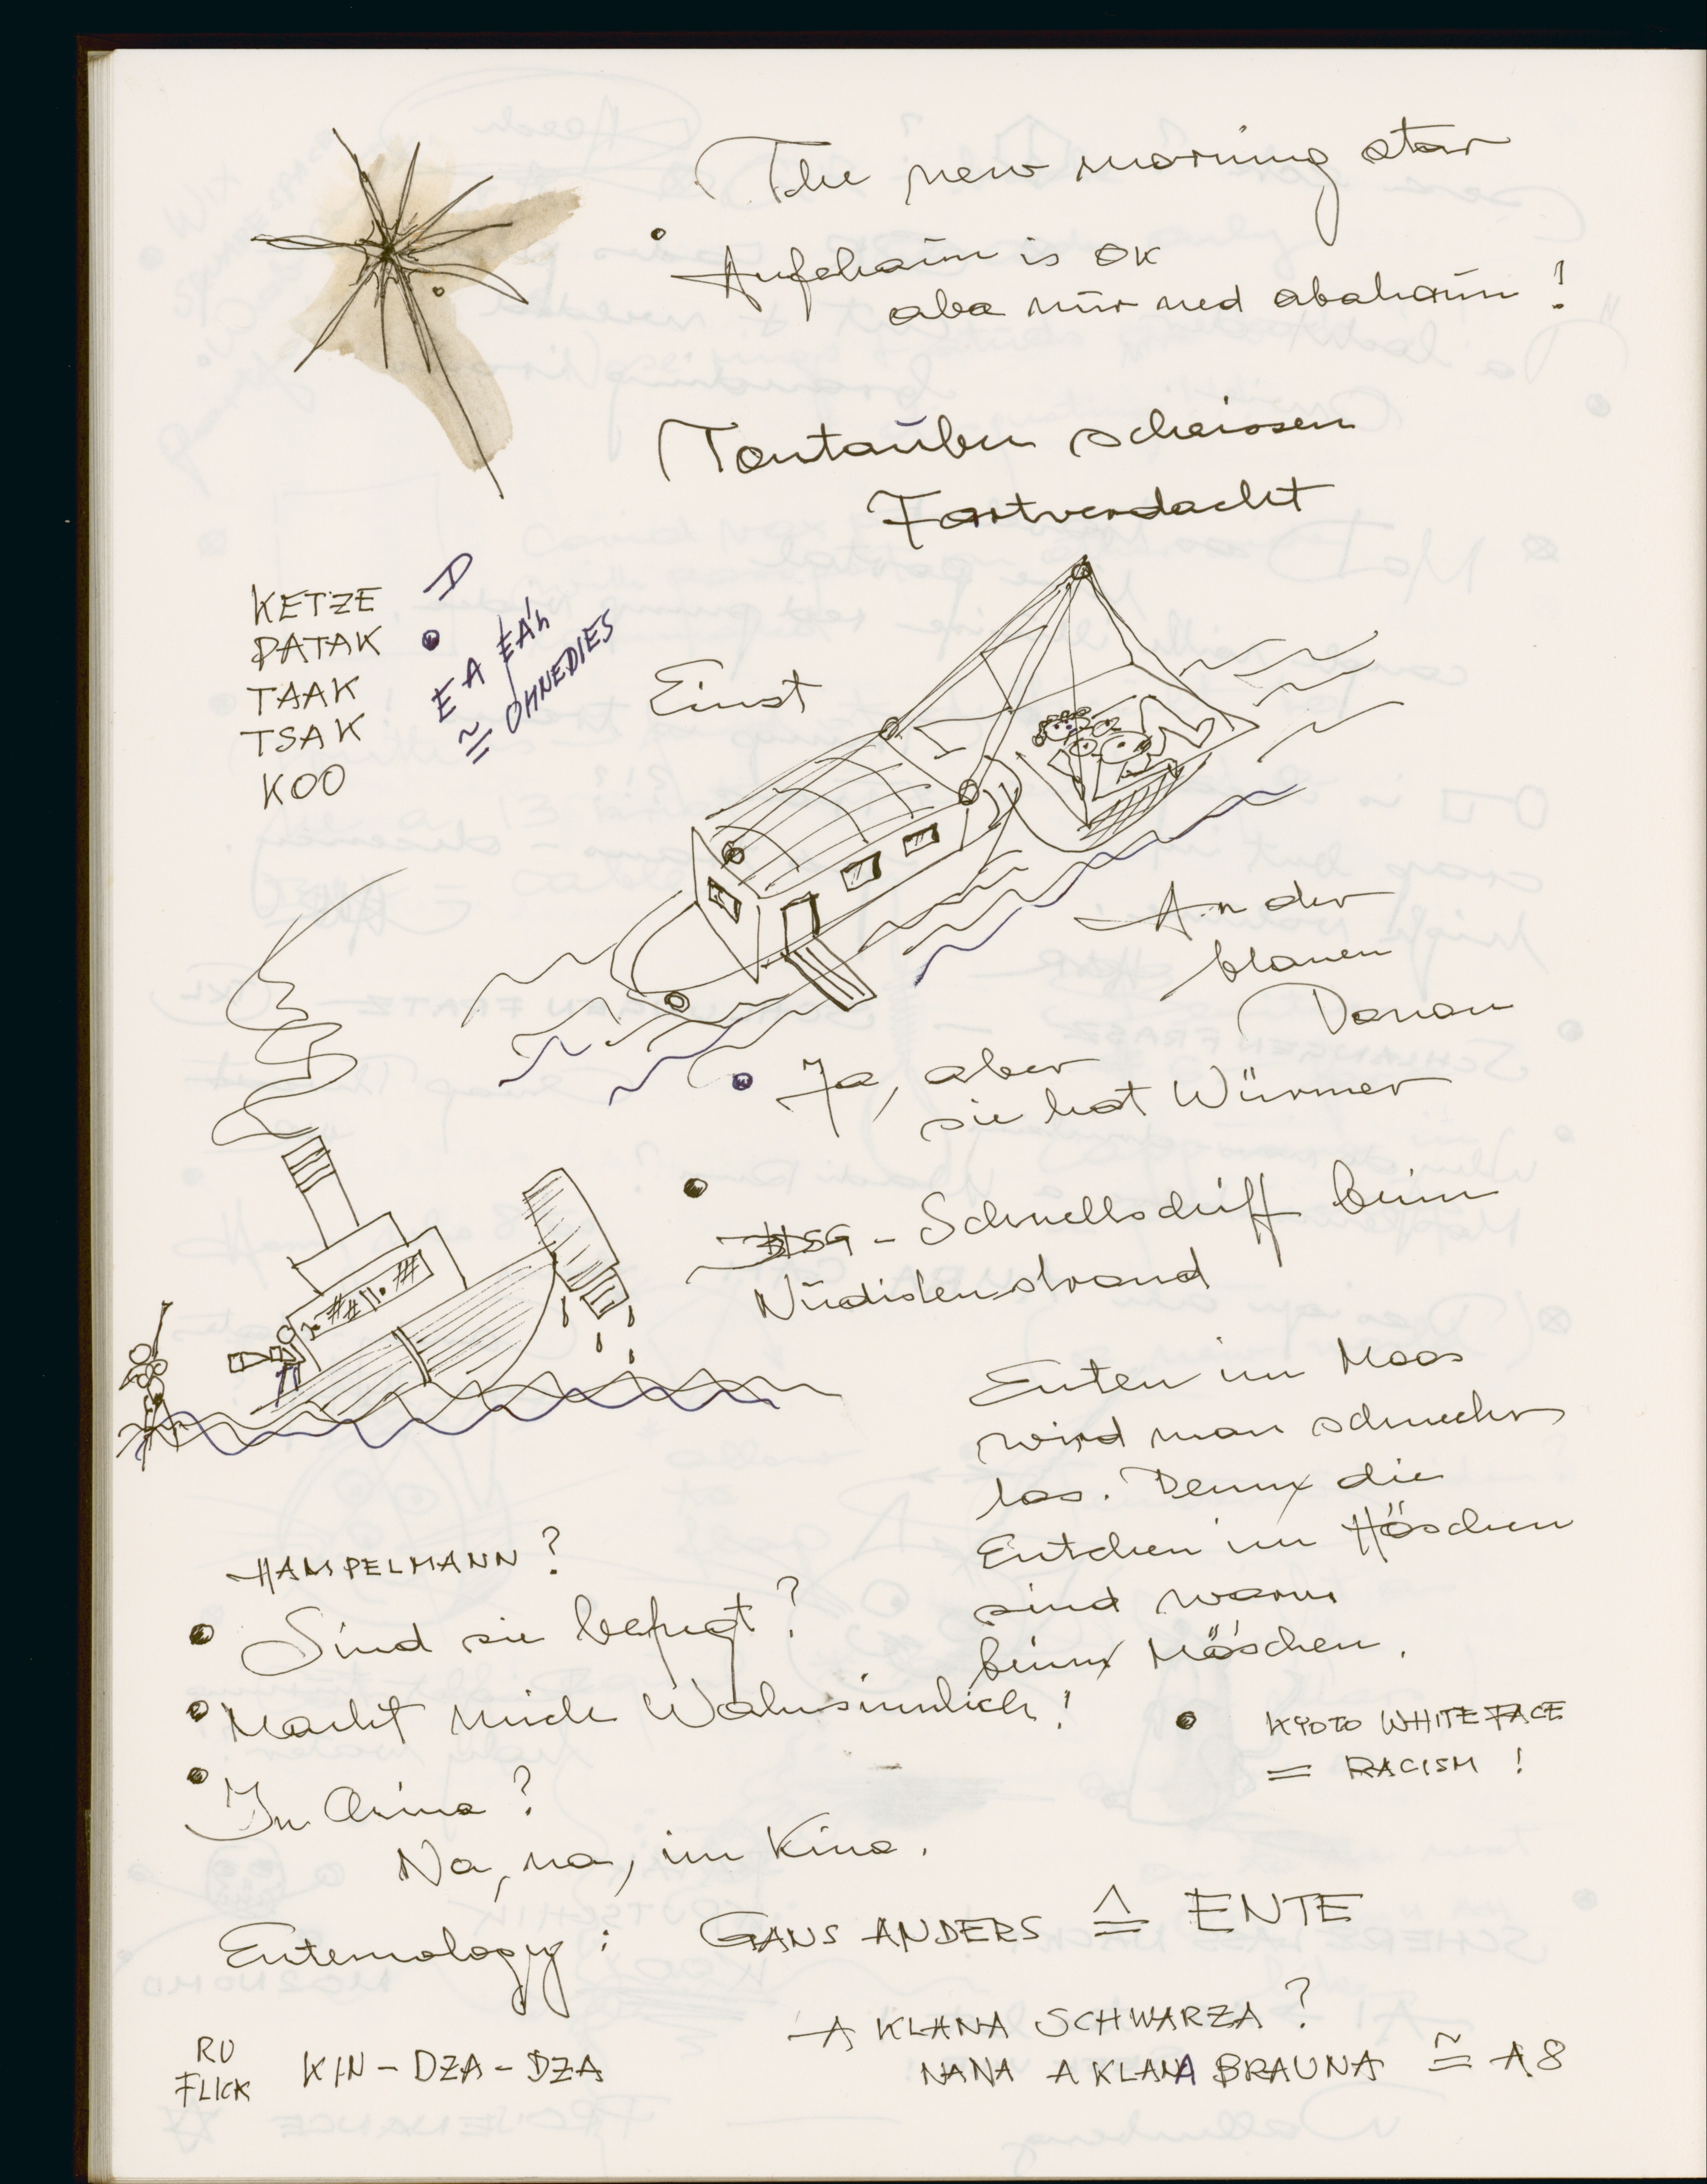 The new morning star
Aufehaun is OK
aba nur ned abahaun!
Tontauben scheissen
Fortverdacht
KETZE
PATAK
TAAK
TSAK
KOO
EA EÁH
≅ OHNEDIES
Einst
An der
blauen
Donau
Ja, aber
sie hat Würmer
SG - Schnellschiff beim
Nudistenstrand
Enten im Moos
wird man schwehr
los. Denn die
Entchen im Höschen
sind warm
beim Möschen.
HAMPELMANN?
Sind sie befugt?
Macht mich Wahnsinnlich!
KYOTO WHITEFACE
= RACISM!
In China?
Na, na, im Kino.
Entemology: GANS ANDERS ≙ ENTE
A KLANA SCHWARZA?
NANA A KLANA BRAUNA ≅ A8
RU
FLICK
KIN-DZA-DZA